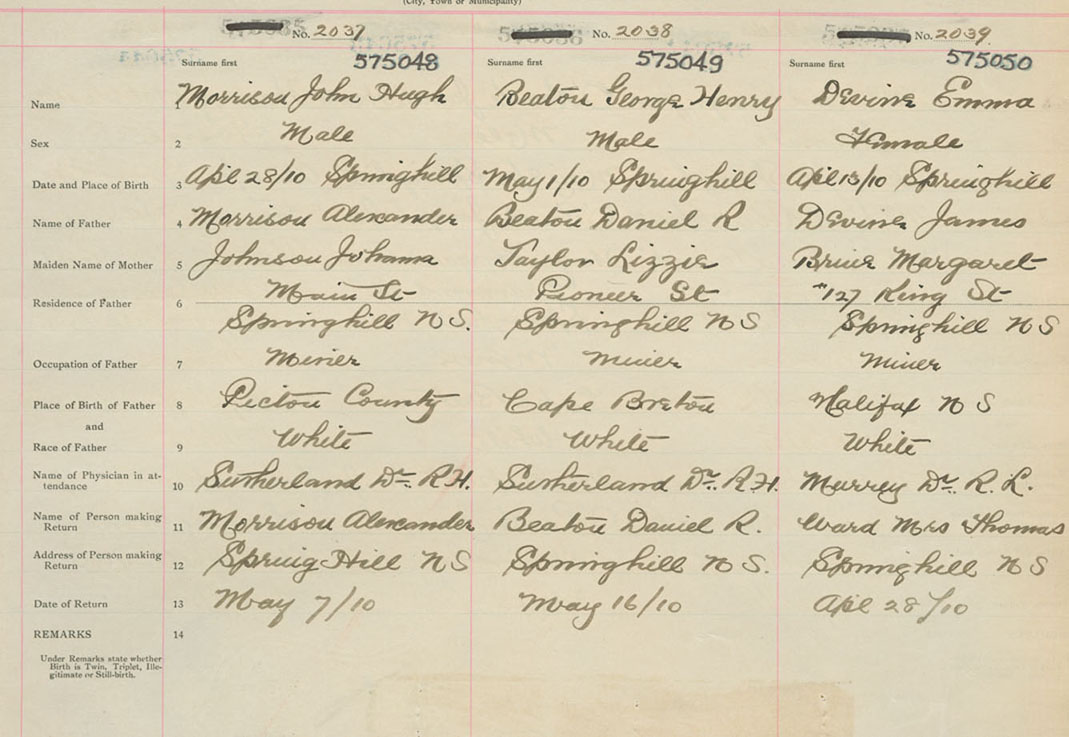 (City, Town or Municipality)
No. 2037 No. 2038 No. 2039
Surname first 575048 Surname first 575049 Surname first 575050
Name Morrison John Hugh Beaton George Henry Devine Emma
Sex 2 Male Male Female
Date and Place of Birth 3 Apl 28/10 Springhill May 1/10 Springhill Apl 13/10 Springhill
Name of Father 4 Morrison Alexander Beaton Daniel R Devine James
Maiden Name of Mother 5 Johnson Johanna Taylor Lizzie Margaret
Residence of Father 6 Main St Pioneer St "127 King St
Springhill N S. Springhill N S Springhill N S
Occupation of Father 7 Miner Miner Miner
Place of Birth of Father 8 Pictou County Cape Breton Halifax N S
and
Race of Father 9 White White White
Name of Physician in at-
tendance 10 Sutherland Dr. R H. Sutherland Dr. R H. Murray Dr. R. L.
Name of Person making
Return 11 Morrison Alexander Beaton Daniel R. Ward Mrs Thomas
Address of Person making
Return 12 Spring Hill N S Springhill N S. Springhill N S
Date of Return 13 May 7/10 May 16/10 Apl 28/10
REMARKS 14
Under Remarks state whether
Birth is Twin, Triplet, Ille-
gitimate or Still-birth.